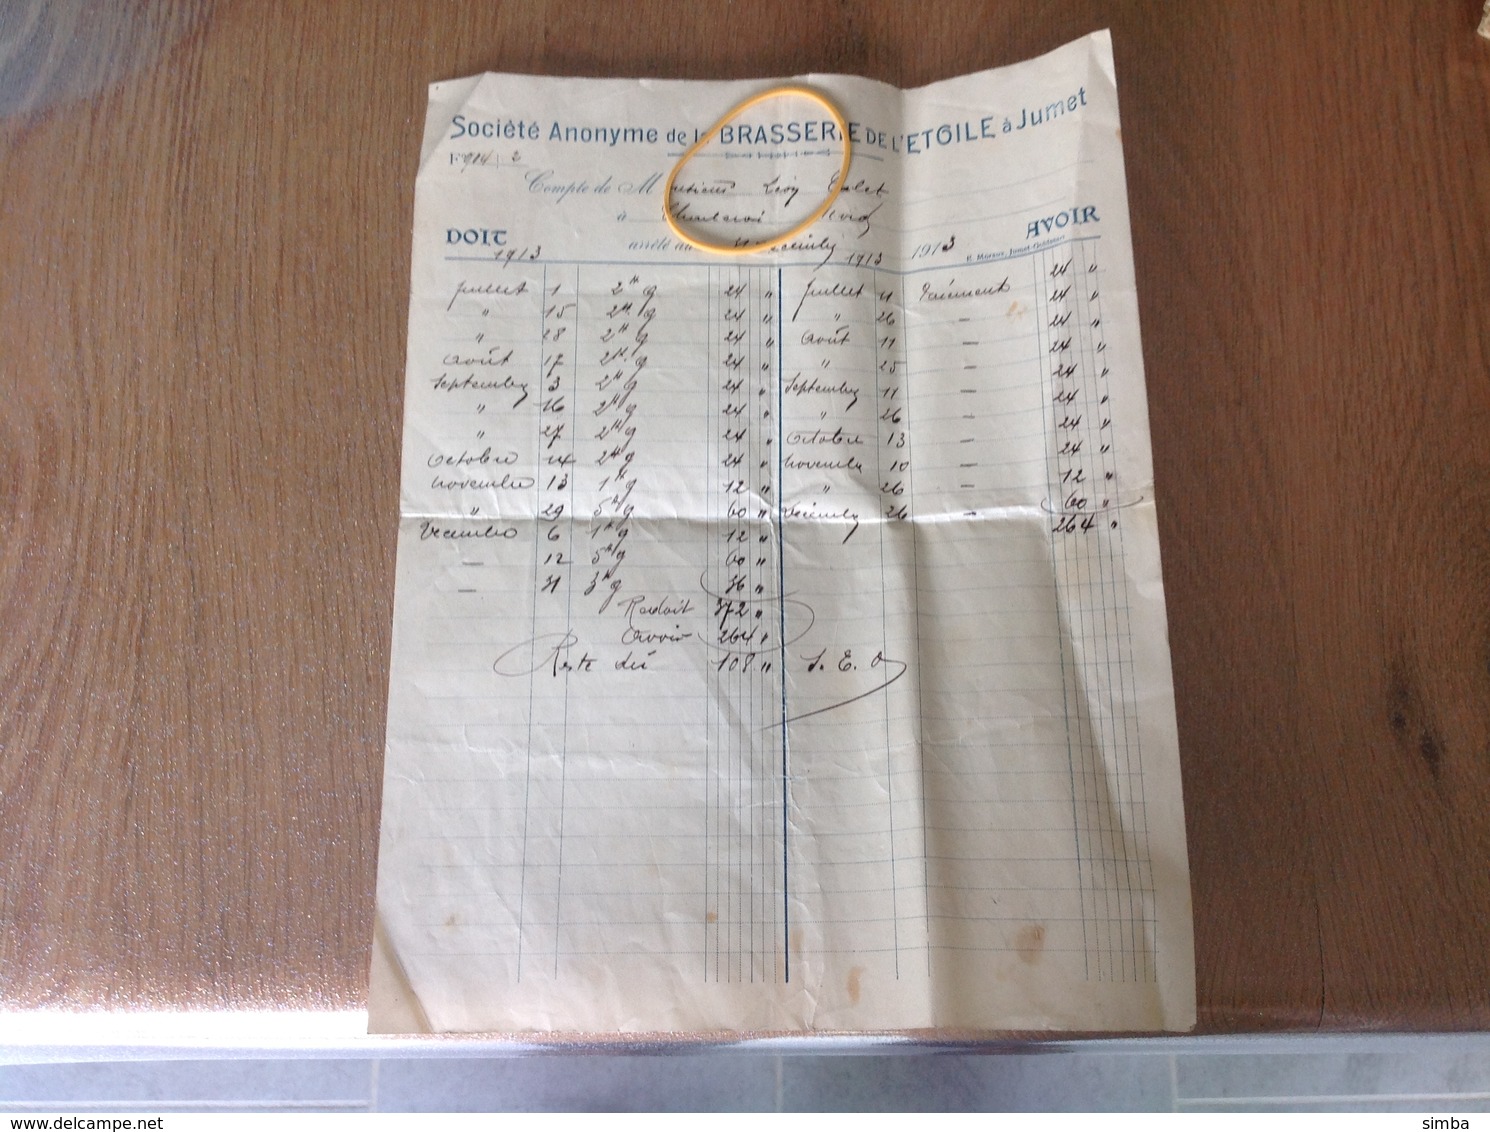 Société Anonyme de la BRASSERIE DE L'ETOILE à Jumet
F° 914 / 2
Compte de Monsieur Léon
à Charleroi
arrêté au 31 Décembre 1913
DOIT 1913
1913 AVOIR
Juillet 1 2 H g 24 " Juillet 11 Paiement 24 "
" 15 2 H g 24 " " 26 — 24 "
" 28 2 H g 24 " Août 11 — 24 "
Août 17 2 H g 24 " " 25 — 24 "
Septembre 3 2 H g 24 " Septembre 11 — 24 "
" 16 2 H g 24 " " 26 — 24 "
" 27 2 H g 24 " Octobre 13 — 24 "
Octobre 14 2 H g 24 " Novembre 10 — 24 "
Novembre 13 1 H g 12 " " 26 — 12 "
" 29 5 H g 60 " Décembre 26 — 60 "
Décembre 6 1 H g 12 " 264 "
— 12 5 H g 60 "
— 31 3 H g 36 "
Redoit 372 "
Avoir 264 "
Reste dû 108 " S. E. O
delcampe.net
simba